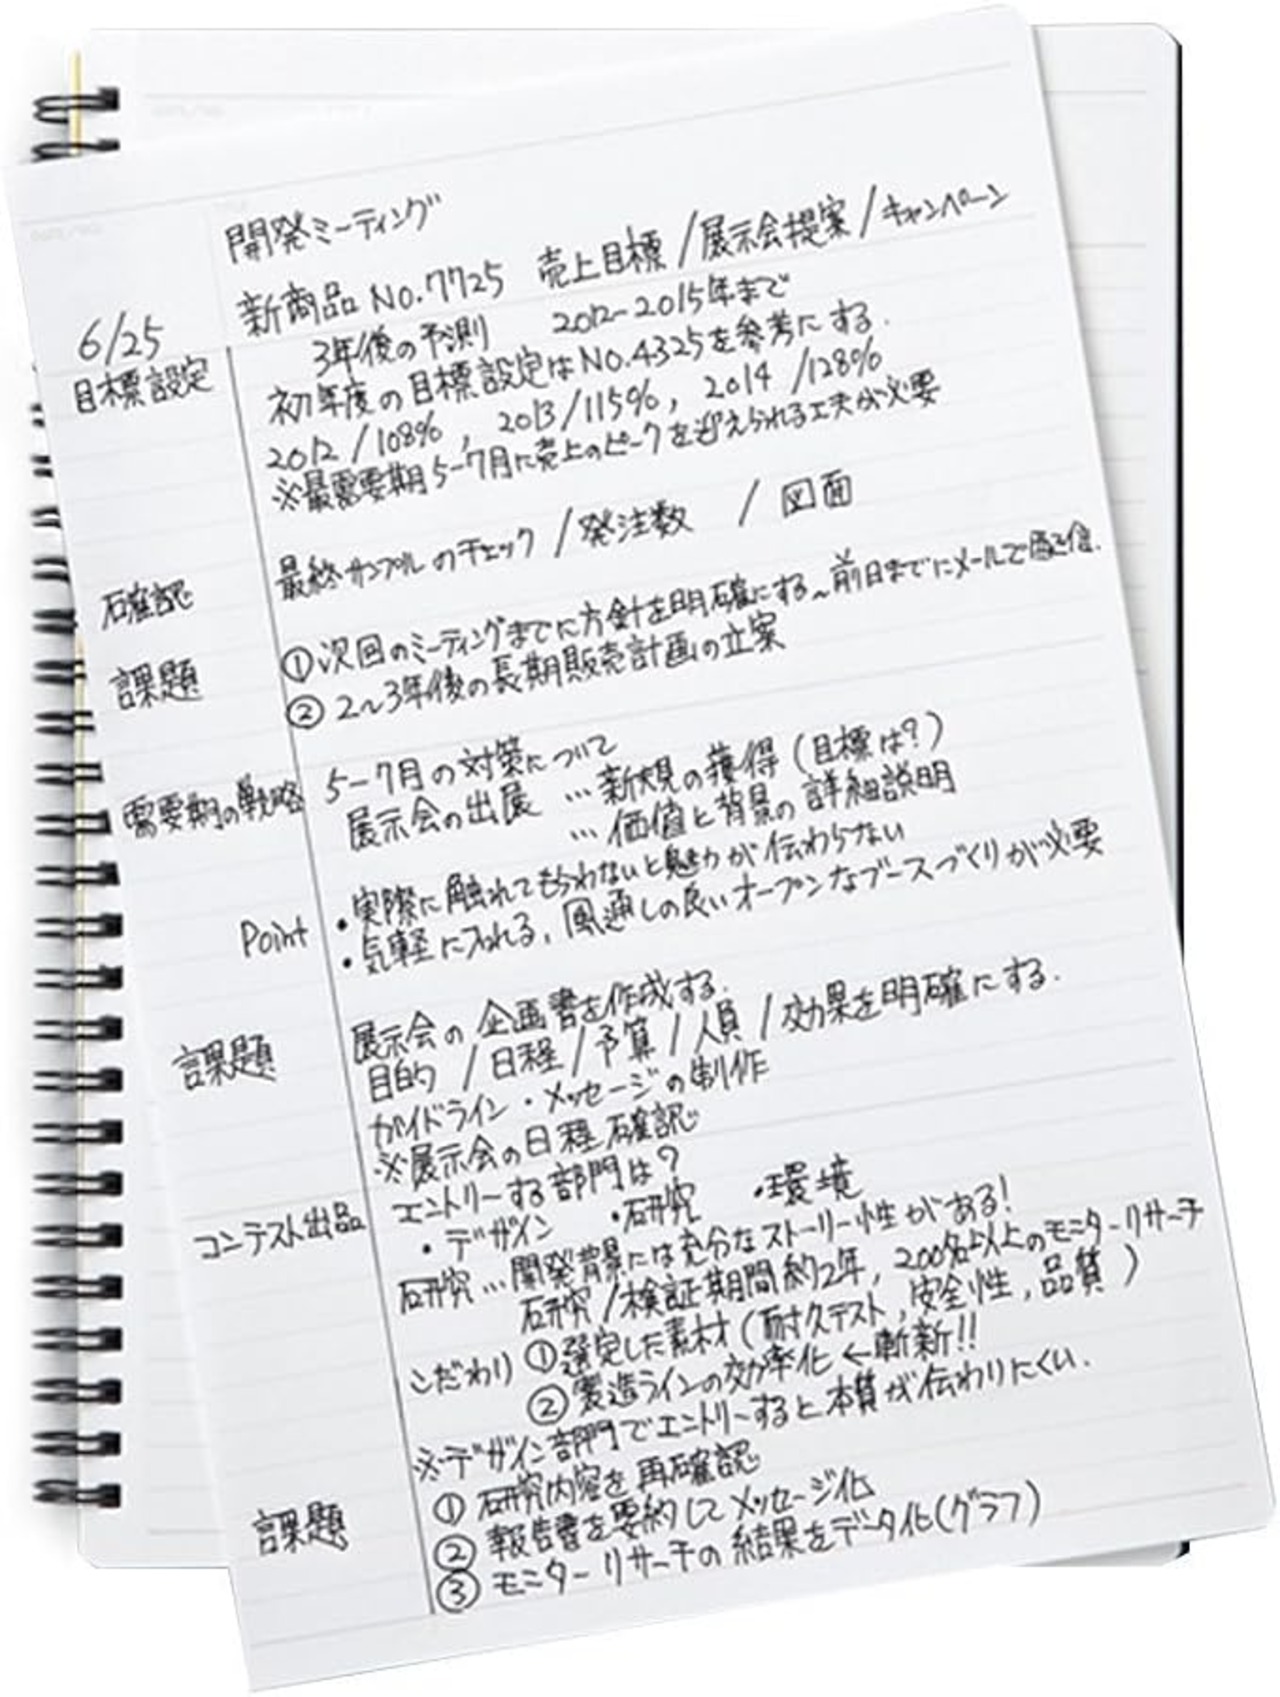 開発ミーティング
新商品No.7725 売上目標/展示会提案/キャンペーン
6/25 3年後の予測 2012-2015年まで
目標設定 初年度の目標設定はNo.4325を参考にする.
2012/108%, 2013/115%, 2014/128%
※最需要期5-7月に売上のピークを迎えられる工夫が必要
確認 最終サンプルのチェック/発注数 /図面
課題 ①次回のミーティングまでに方針を明確にする~前日までにメールで配信.
②2~3年後の長期販売計画の立案
需要期の戦略 5-7月の対策について
展示会の出展 …新規の獲得(目標は?)
…価値と背景の詳細説明
Point ・実際に触れてもらわないと魅力が伝わらない
・気軽に入れる,風通しの良いオープンなブースづくりが必要
課題 展示会の企画書を作成する.
目的/日程/予算/人員/効果を明確にする.
ガイドライン・メッセージの制作
※展示会の日程確認
コンテスト出品 エントリーする部門は?
・デザイン ・研究 ・環境
研究…開発背景には充分なストーリー性がある!
研究/検証期間約2年,200名以上のモニターリサーチ
こだわり ①選定した素材(耐久テスト,安全性,品質)
②製造ラインの効率化←斬新!!
※デザイン部門でエントリーすると本質が伝わりにくい.
課題 ①研究内容を再確認
②報告書を要約してメッセージ化
③モニターリサーチの結果をデータ化(グラフ)